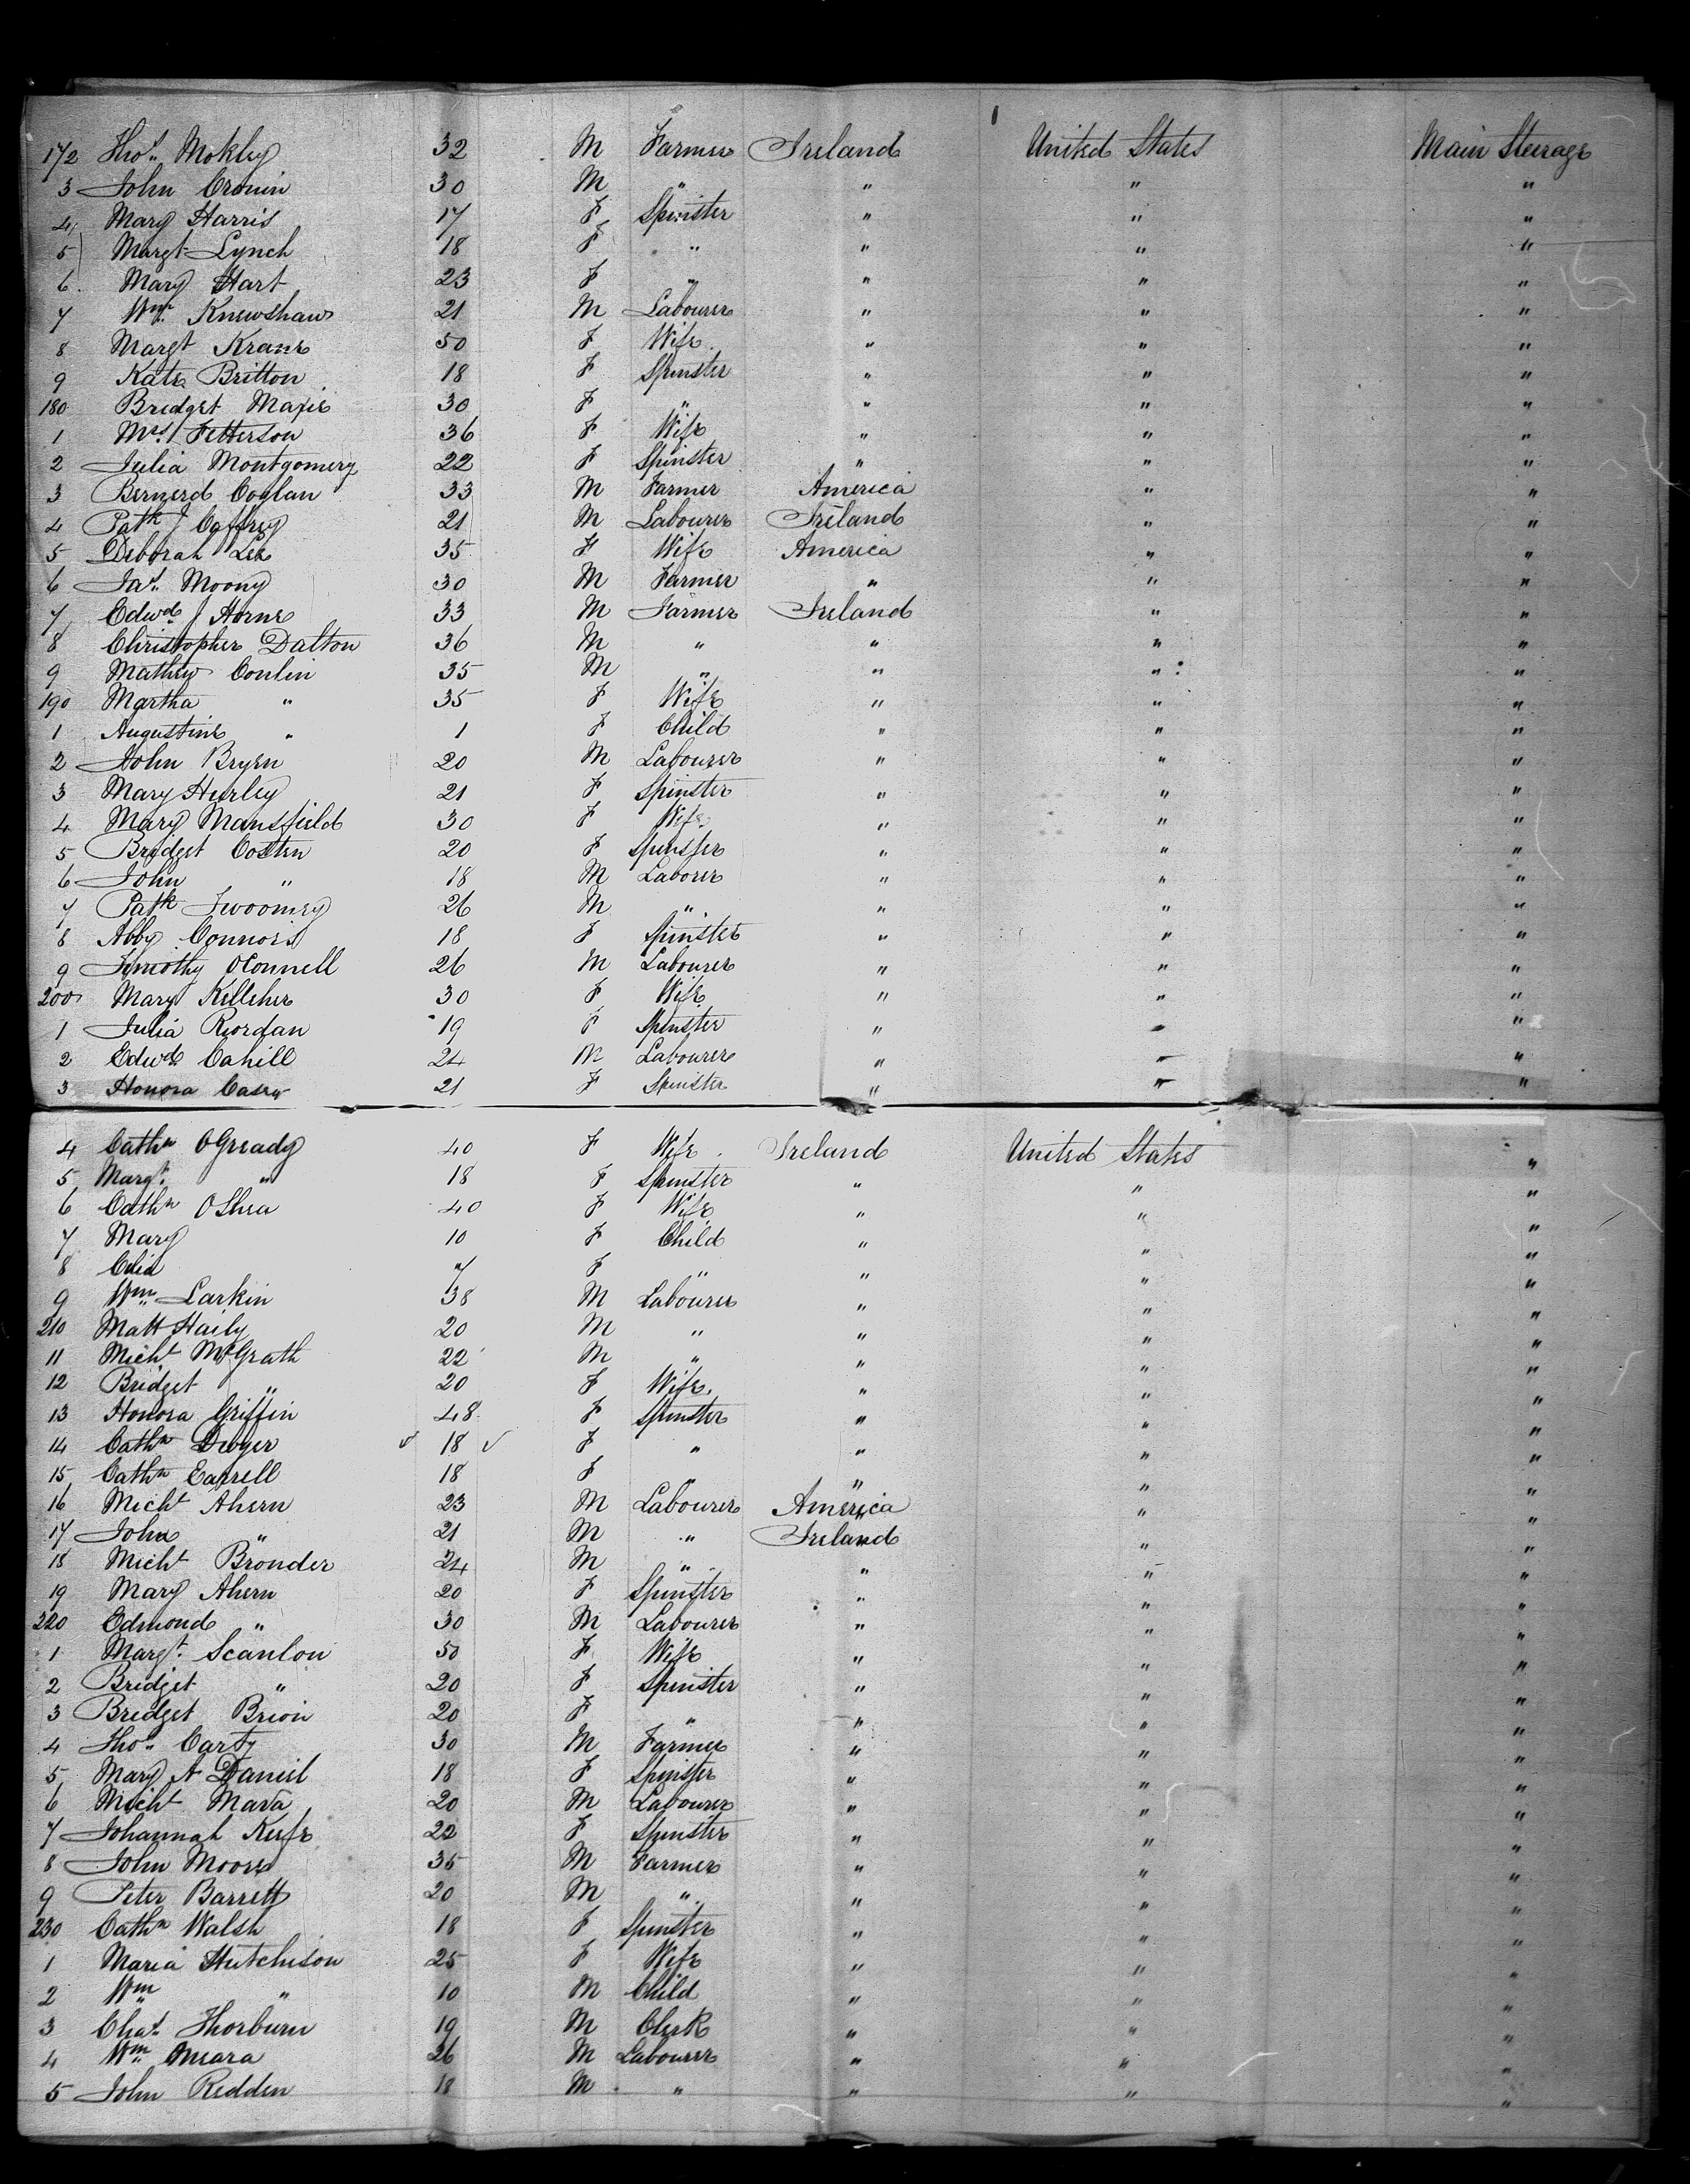 172 Thos. Mokley 32 M Farmer Ireland United States Main Steerage
3 John Cronin 30 M " " " "
4 Mary Harris 17 F Spinster " " "
5 Margt Lynch 18 F " " " "
6 Mary Hart 23 F " " " "
7 Wm. Knewshaw 21 M Labourer " " "
8 Margt Krane 50 F Wife " " "
9 Kate Britton 18 F Spinster " " "
180 Bridget Maxie 30 F " " " "
1 Mrs. Fetterson 36 F Wife " " "
2 Julia Montgomery 22 F Spinster " " "
3 Bernerd Coglan 33 M Farmer America " "
4 Patk J Caffrey 21 M Labourer Ireland " "
5 Deborah Lee 35 F Wife America " "
6 Jas. Moony 30 M Farmer " " "
7 Edwd J Horne 33 M Farmer Ireland " "
8 Christopher Dalton 36 M " " " "
9 Mathew Conlin 35 M " " " "
190 Martha " 35 F Wife " " "
1 Augustine " 1 F Child " " "
2 John Bryen 20 M Labourer " " "
3 Mary Hurley 21 F Spinster " " "
4 Mary Mansfield 30 F Wife " " "
5 Bridget Costen 20 F Spinster " " "
6 John " 18 M Laborer " " "
7 Patk Twoomey 26 M " " " "
8 Abby Connors 18 F Spinster " " "
9 Timothy OConnell 26 M Labourer " " "
200 Mary Kelleher 30 F Wife " " "
1 Julia Riordan 19 F Spinster " " "
2 Edwd. Cahill 24 M Labourer " " "
3 Honora Casey 21 F Spinster " " "
4 Cathn OGready 40 F Wife Ireland United States "
5 Margt. " 18 F Spinster " " "
6 Cathn OShea 40 F Wife " " "
7 Mary 10 F Child " " "
8 Celia 7 F " " " "
9 Wm. Larkin 38 M Labourer " " "
210 Matt Haily 20 M " " " "
11 Michl McGrath 22 M " " " "
12 Bridget " 20 F Wife " " "
13 Honora Griffin 48 F Spinster " " "
14 Cathn Dwyer 18 F " " " "
15 Cathn Farrell 18 F " " " "
16 Michl Ahern 23 M Labourer America " "
17 John " 21 M " Ireland " "
18 Michl Bronder 24 M " " " "
19 Mary Ahern 20 F Spinster " " "
220 Edmond " 30 M Labourer " " "
1 Margt. Scanlon 50 F Wife " " "
2 Bridget " 20 F Spinster " " "
3 Bridget Brion 20 F " " " "
4 Thos. Carty 30 M Farmer " " "
5 Mary A Daniel 18 F Spinster " " "
6 Michl Mara 20 M Labourer " " "
7 Johannah Keefe 22 F Spinster " " "
8 John Moore 35 M Farmer " " "
9 Peter Barrett 20 M " " " "
230 Cathn Walsh 18 F Spinster " " "
1 Maria Hutchison 25 F Wife " " "
2 Wm " 10 M Child " " "
3 Chas. Thorburn 19 M Clerk " " "
4 Wm. Meara 26 M Labourer " " "
5 John Redden 18 M " " " "